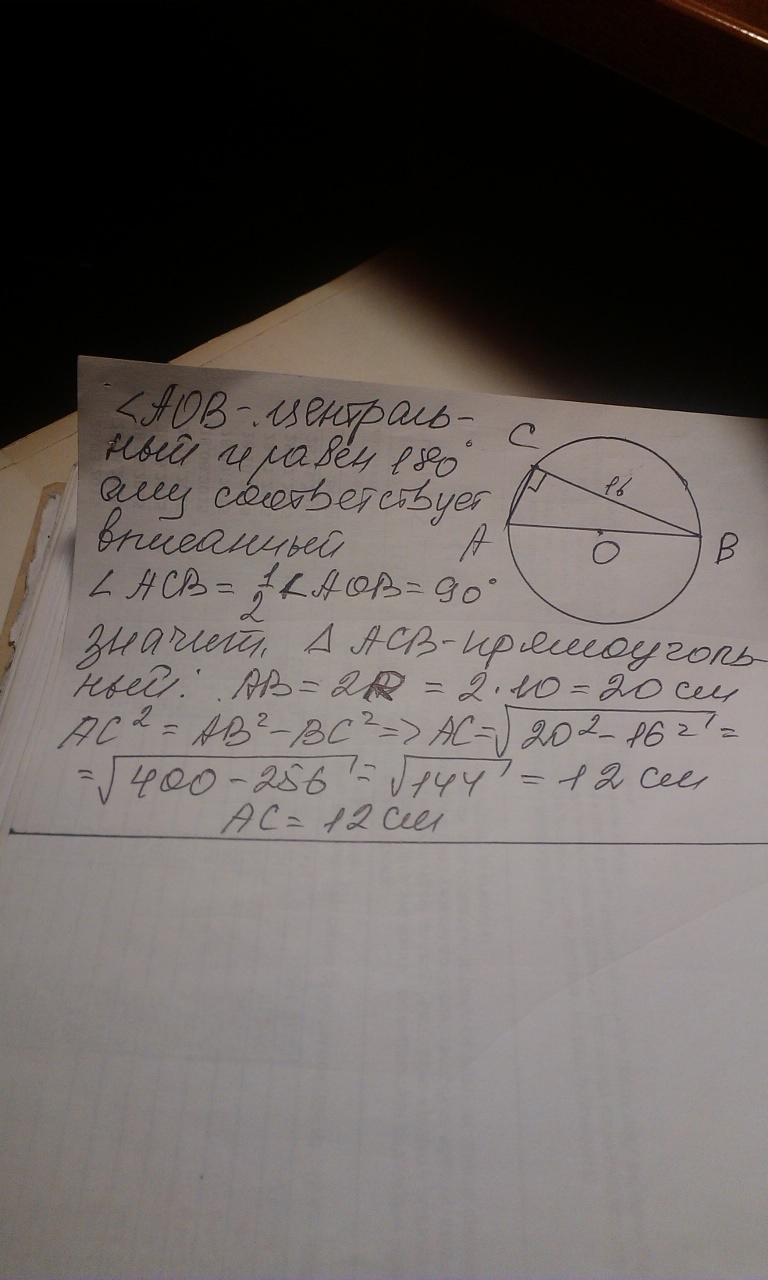 ∠AOB - централь-
ный и равен 180°
ему соответствует
вписанный
∠ACB = 1/2 ∠AOB = 90°
значит, Δ ACB - прямоуголь-
ный: AB = 2R = 2·10 = 20 см
AC² = AB² - BC² => AC = √20² - 16² =
= √400 - 256 = √144 = 12 см
AC = 12 см
C
16
A
O
B